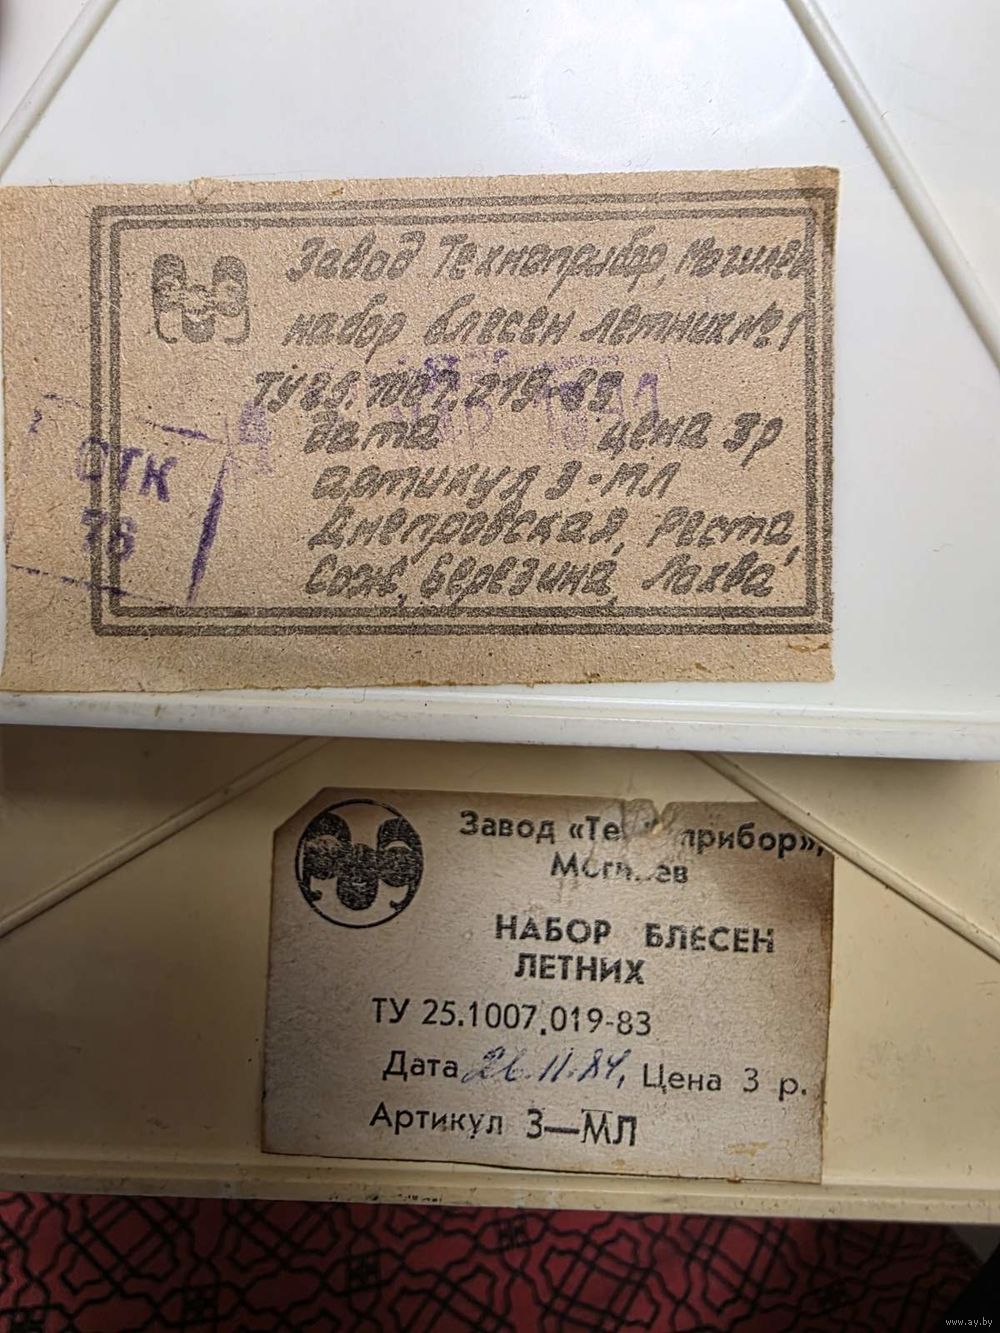 Завод Техноприбор, Могилев
набор блесен летних №1
дата цена 3р
артикул 3-МЛ
Днепровская, Реста,
Сож, Березина, Лахва
СТК
76
Завод
НАБОР БЛЕСЕН
ЛЕТНИХ
ТУ 25.1007.019-83
Дата 26.11.84, Цена 3 р.
Артикул 3—МЛ
www.ay.by